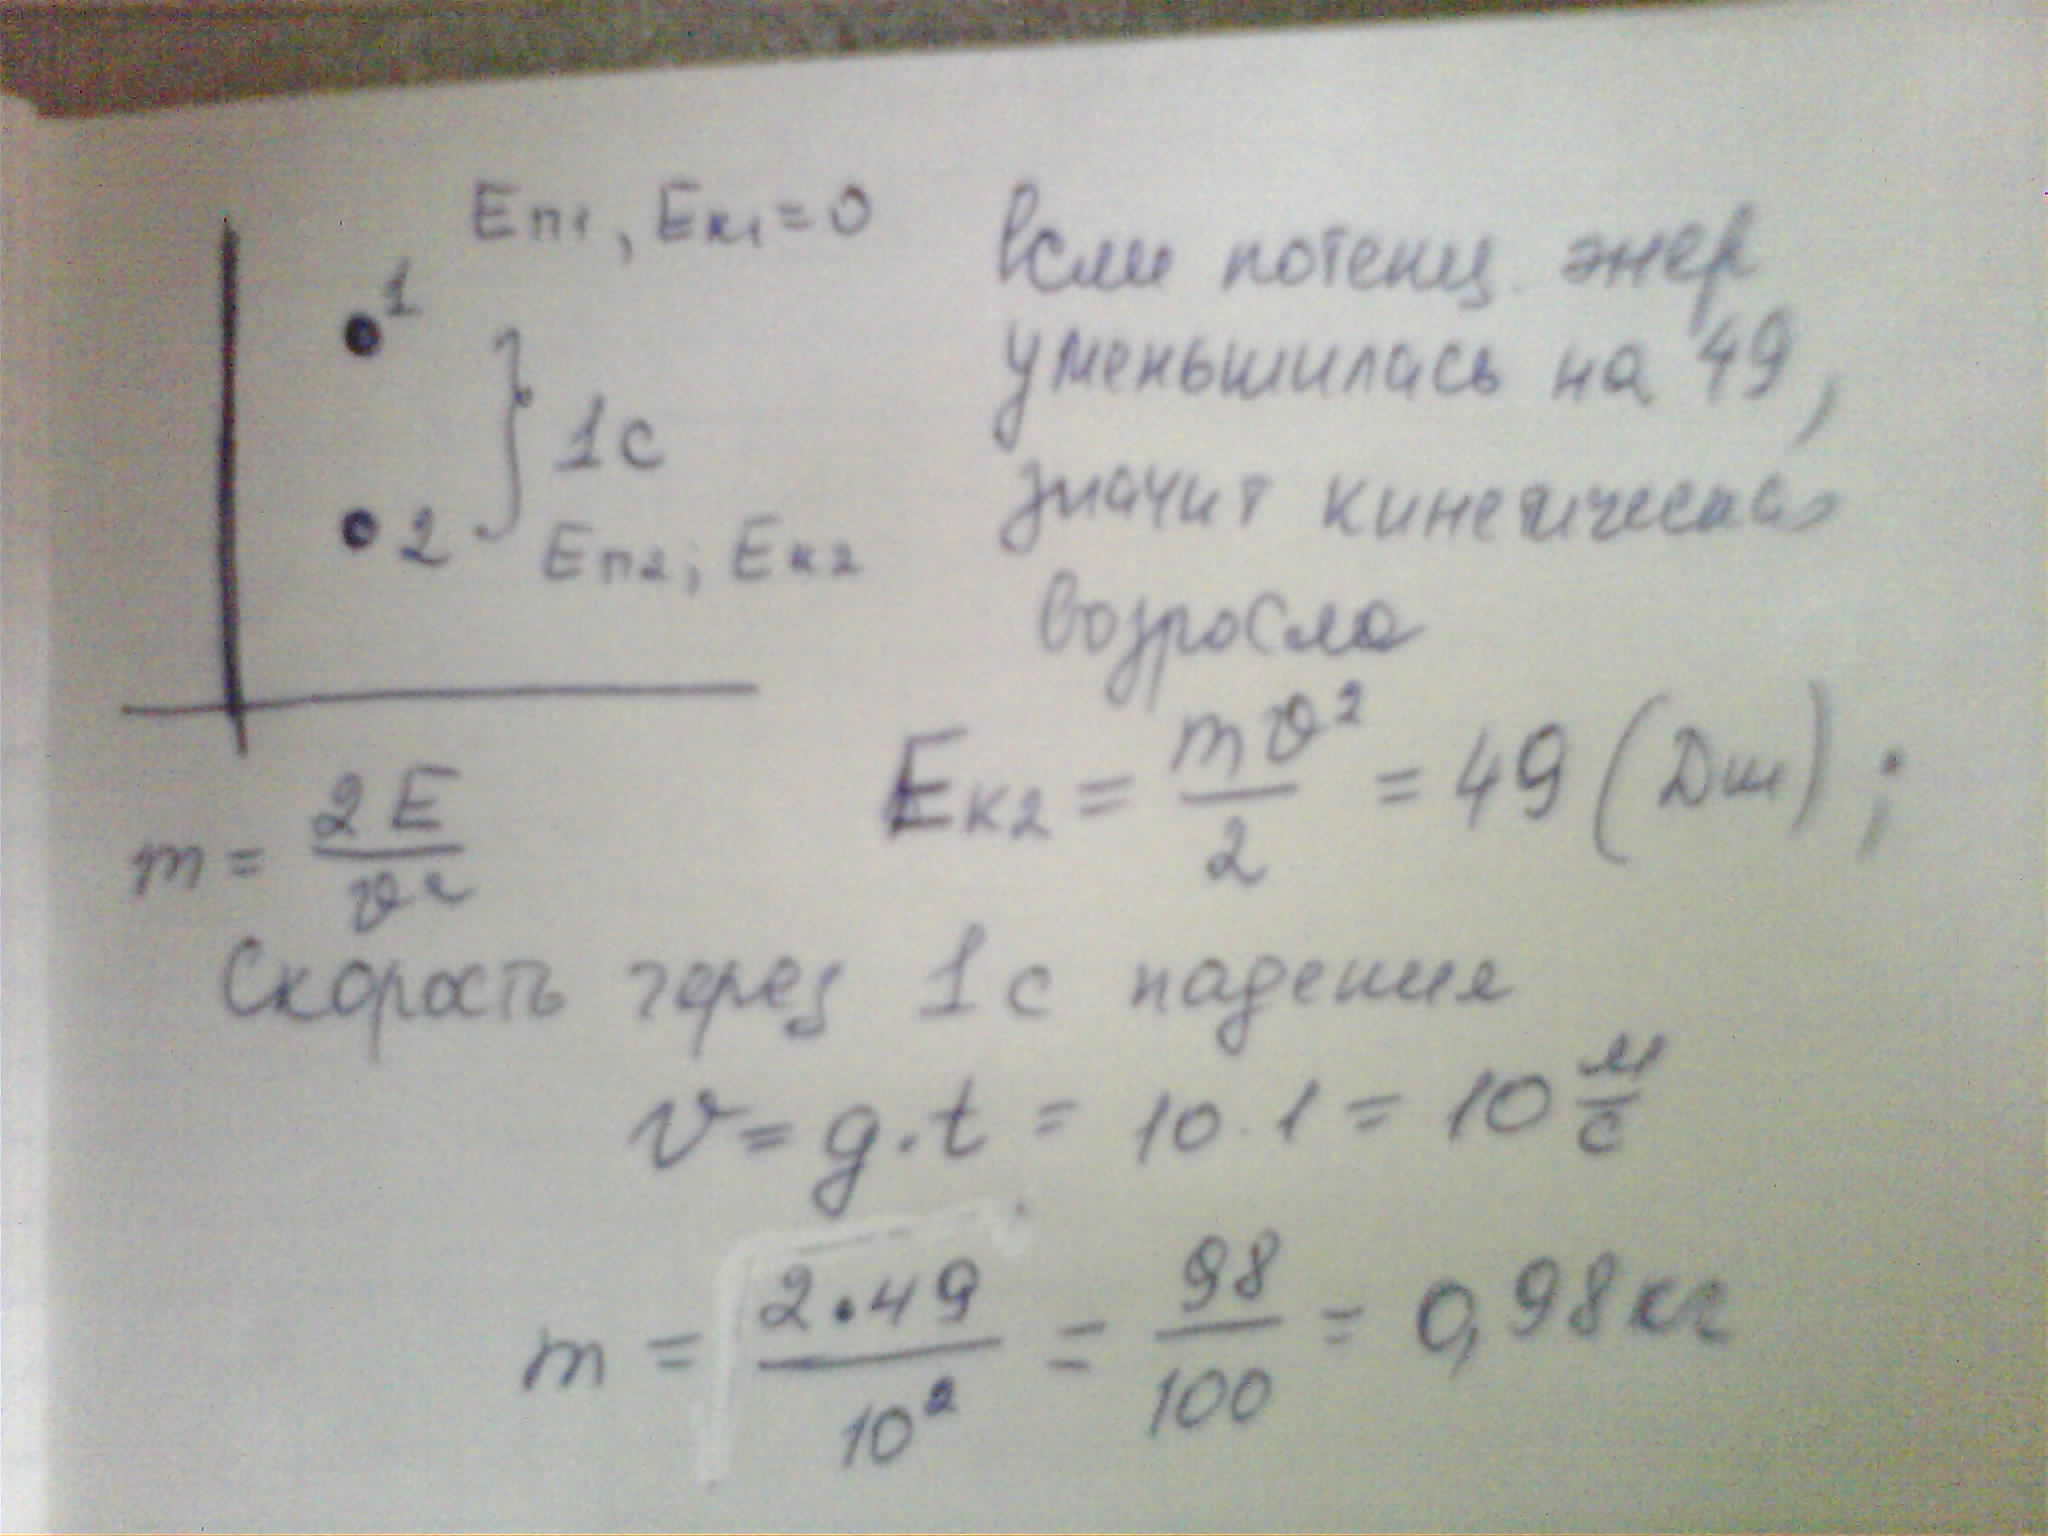 Eп1, Eк1 = 0
1
} 1с
2
Eп2; Eк2
если потенц. энер
уменьшилась на 49,
значит кинетическая
возросла
m = 2E/v²
Eк2 = mv²/2 = 49 (Дж);
Скорость через 1 с падения
v = g·t = 10·1 = 10 м/с
m = 2·49/10² = 98/100 = 0,98 кг